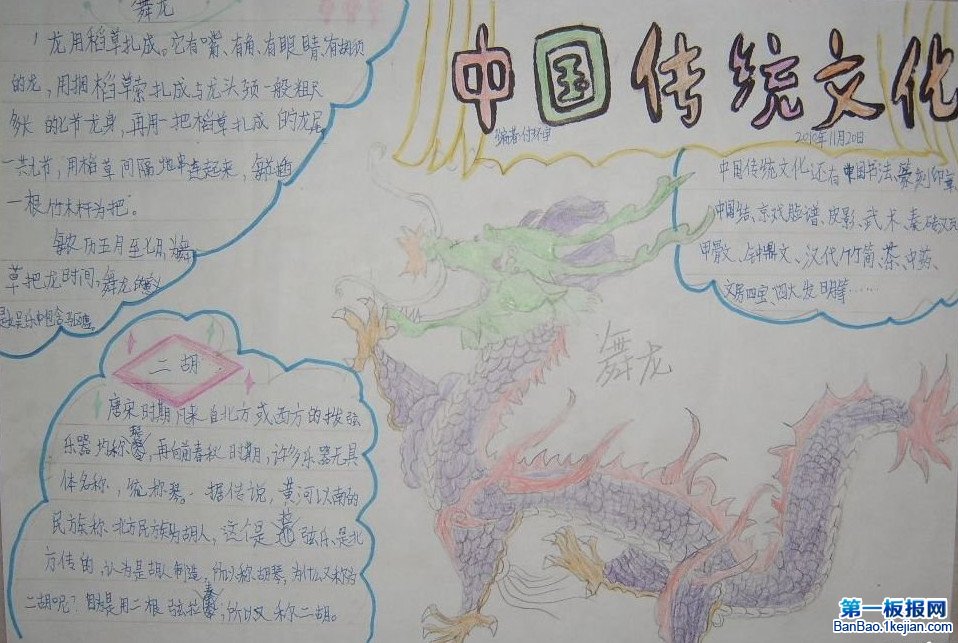 舞龙
龙用稻草扎成。它有嘴、有角、有眼睛、有胡须
的龙，用捆稻草索扎成与龙头颈一般粗尺
多长的七节龙身，再用一把稻草扎成的龙尾
一共九节，用稻草间隔地串连起来，每通
一根竹木杆为把。
每农历五月至七月，舞
草把龙时间，舞龙的
中国传统文化
编著:付
2010年11月20日
中国传统文化还有中国书法、篆刻印章、
中国结、京戏脸谱、皮影、武术、秦砖汉瓦
甲骨文、钟鼎文、汉代竹简、茶、中药、
文房四宝、四大发明等……
舞龙
二胡
唐宋时期凡来自北方或西方的拨弦
乐器均称琴，再向前春秋时期，许多乐器无具
体名称，统称琴。据信说，黄河以南的
民族称北方民族为胡人，这个是 弦乐是北
方传的，认为是胡人制造，所以称胡琴，为什么又称为
二胡呢？ 是用二根弦拉奏，所以又称二胡。
第一板报网
BanBao.1kejian.com